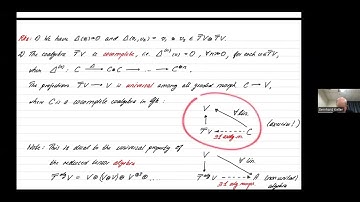 Rks: 1) We have Δ(v)=0 and Δ(v₁v₂) = v₁ ⊗ v₂ ∈ T̄V⊗T̄V.
2) The coalgebra T̄V is cocomplete, i.e. Δ⁽ⁿ⁾(x) = 0, ∀n≫0, for each x∈T̄V,
when Δ⁽ⁿ⁾: C →Δ C⊗C → ... → C^⊗n.
The projection T̄V → V is universal among all graded morph. C → V,
where C is a cocomplete coalgebra in
V
∀ lin.
T̄V
C
∃! coalg. m.
(exercise!)
Note: This is dual to the universal property of
the reduced tensor algebra
T̄^alg V = V⊕(V⊗V)⊕V^⊗3 ...
V
∀ lin.
T̄^alg V
A (nonunital)
algebra
∃! alg. morph.
Bernhard Keller